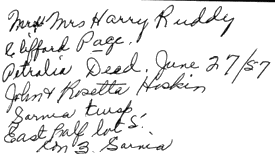 Mr & Mrs Harry Ruddy
Clifford Page.
Petrolia Dead. June 27/57
John & Rosetta Hoskin
Sarnia twsp.
East half lot 5.
Con 3. Sarnia